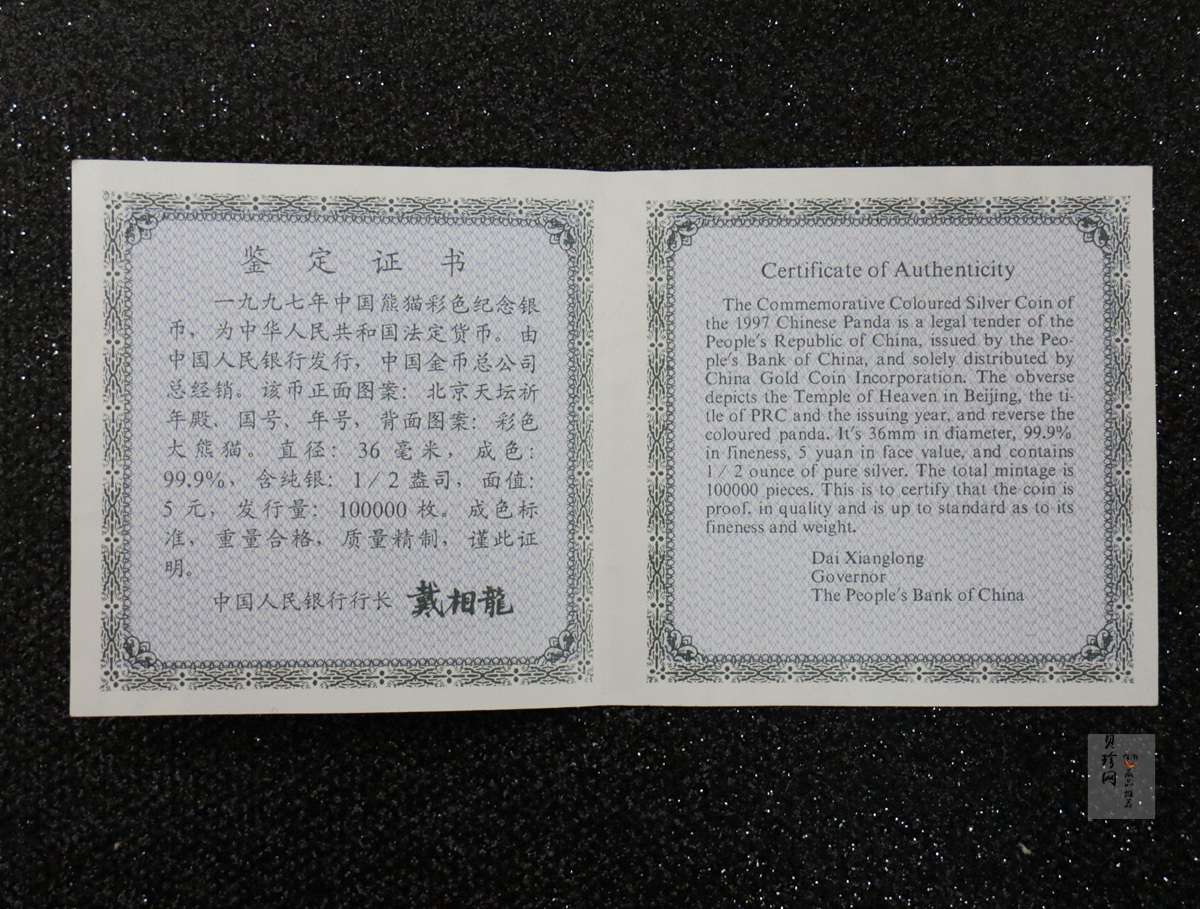 鉴定证书
一九九七年中国熊猫彩色纪念银
币，为中华人民共和国法定货币。由
中国人民银行发行，中国金币总公司
总经销。该币正面图案：北京天坛祈
年殿、国号、年号，背面图案：彩色
大熊猫。直径：36毫米，成色：
99.9%，含纯银：1/2盎司，面值：
5元，发行量：100000枚。成色标
准，重量合格，质量精制，谨此证
明。
中国人民银行行长 戴相龍
Certificate of Authenticity
The Commemorative Coloured Silver Coin of
the 1997 Chinese Panda is a legal tender of the
People's Republic of China, issued by the Peo-
ple's Bank of China, and solely distributed by
China Gold Coin Incorporation. The obverse
depicts the Temple of Heaven in Beijing, the ti-
tle of PRC and the issuing year, and reverse the
coloured panda. It's 36mm in diameter, 99.9%
in fineness, 5 yuan in face value, and contains
1/2 ounce of pure silver. The total mintage is
100000 pieces. This is to certify that the coin is
proof. in quality and is up to standard as to its
fineness and weight.
Dai Xianglong
Governor
The People's Bank of China
贝珍网
藏品推荐